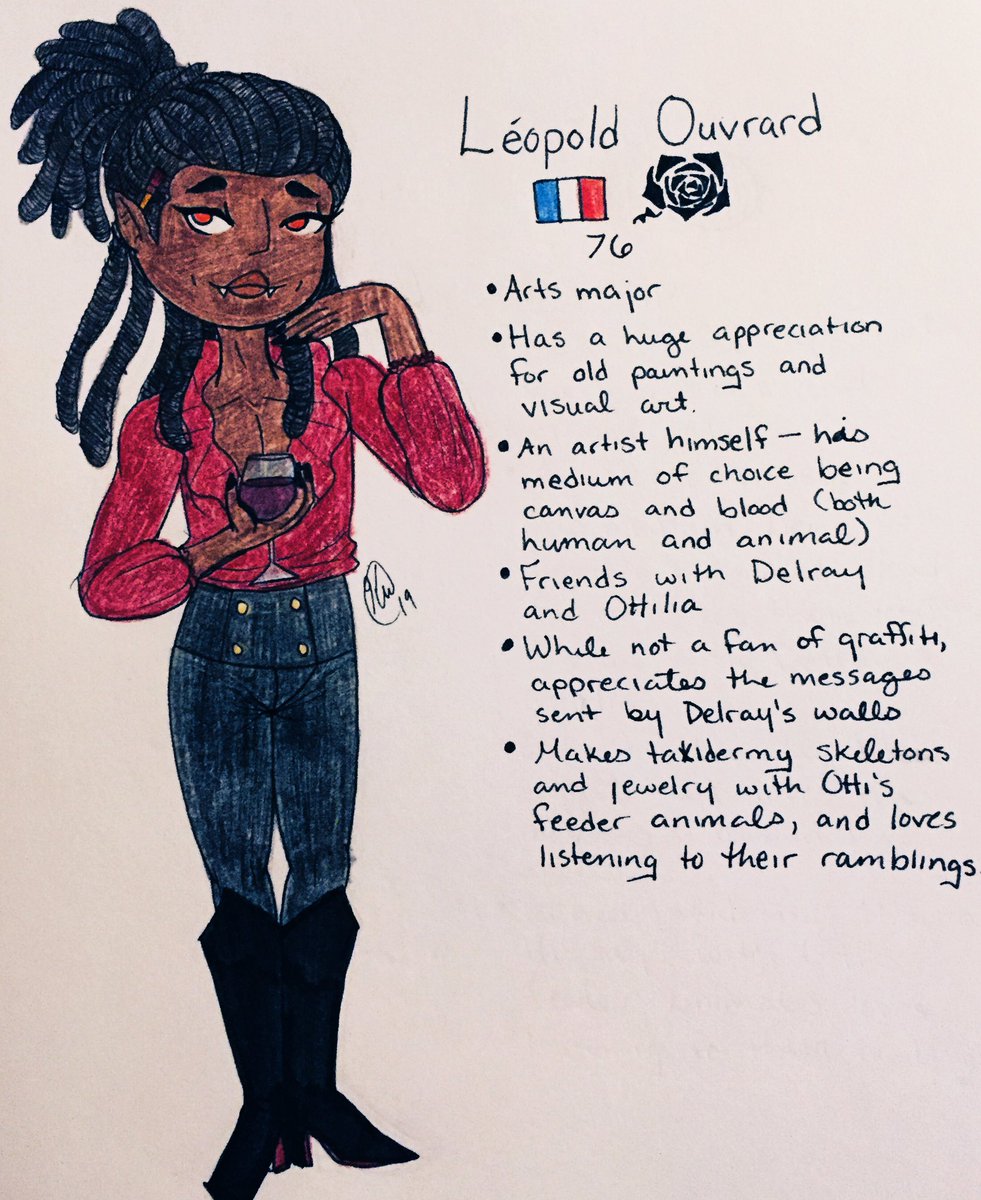 Léopold Ouvrard
76
• Arts major
• Has a huge appreciation
for old paintings and
visual art.
• An artist himself — his
medium of choice being
canvas and blood (both
human and animal)
• Friends with Delray
and Ottilia
• While not a fan of graffiti,
appreciates the messages
sent by Delray's walls
• Makes taxidermy skeletons
and jewelry with Otti's
feeder animals, and loves
listening to their ramblings.
19